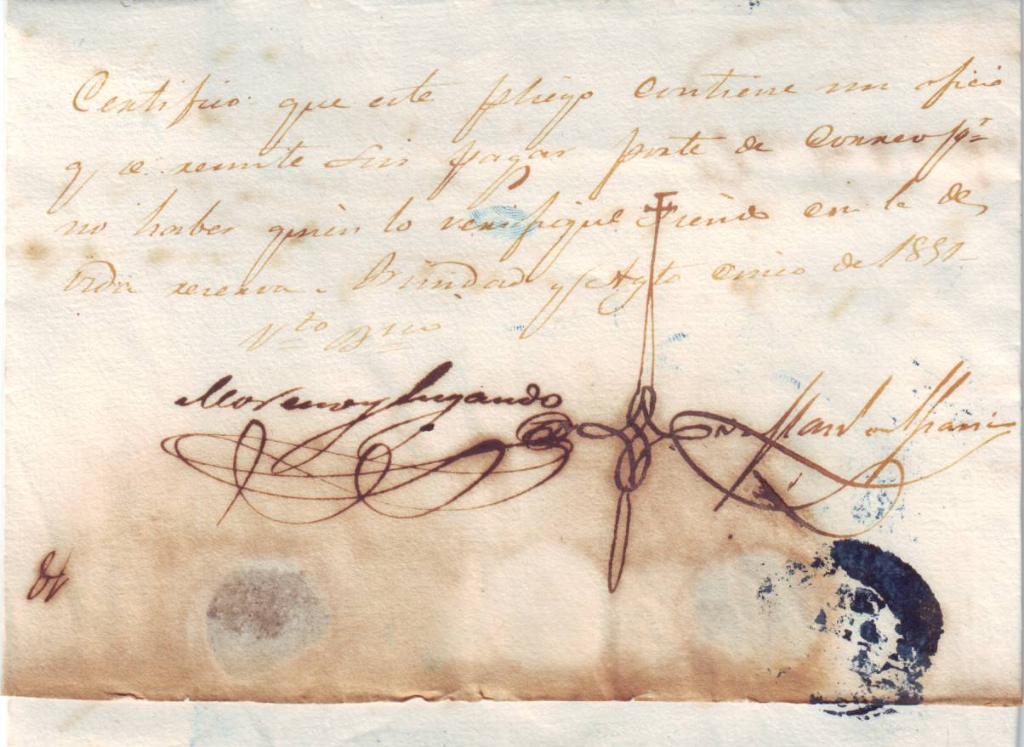 Certifico que este pliego contiene un oficio
q. se remite sin pagar porte de Correo pr.
no haber quien lo verifique siendo en la de
vida reserva. Trinidad y Agto cinco de 1851
Vto Bno
Moreno y Lugando